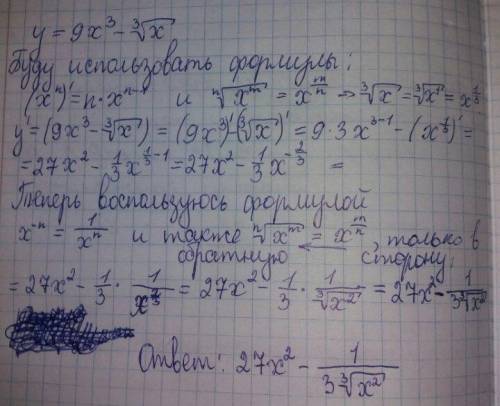 y = 9x³ - ∛x
Буду использовать формулы:
(xⁿ)' = n·xⁿ⁻¹ и ⁿ√xᵐ = x^(m/n) → ∛x = ∛x¹ = x^(1/3)
y' = (9x³ - ∛x) = (9x³)' - (∛x)' = 9·3x³⁻¹ - (x^(1/3))' =
= 27x² - 1/3 x^(1/3 - 1) = 27x² - 1/3 x^(-2/3) =
Теперь воспользуюсь формулой
x⁻ⁿ = 1/xⁿ и также ⁿ√xᵐ = x^(m/n), только в
обратную ← сторону:
= 27x² - 1/3 · 1/x^(2/3) = 27x² - 1/3 · 1/∛x² = 27x² - 1/(3∛x²)
Ответ: 27x² - 1/(3∛x²)